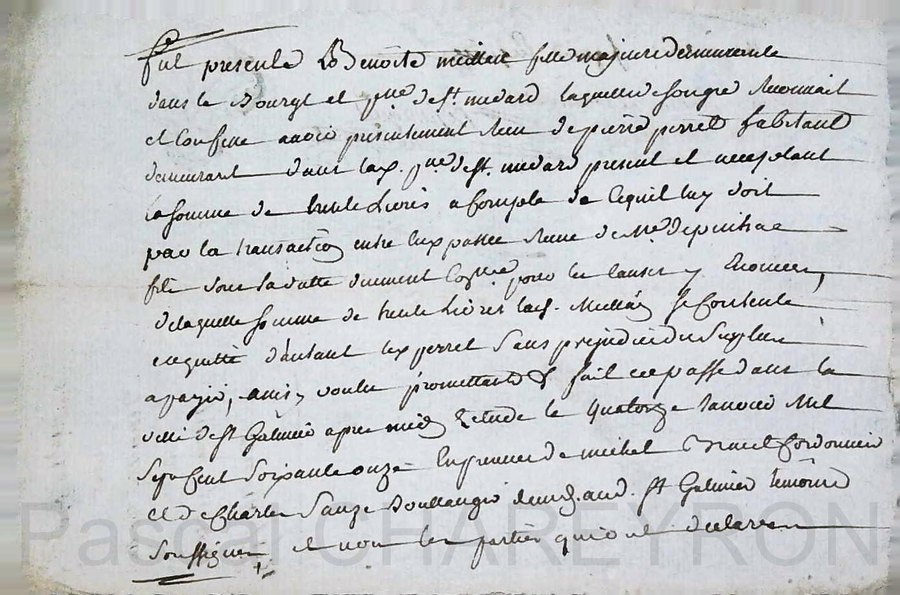 fut presente Benoite fille majeure demeurante
dans le Bourg et p.sse de st. medard laquelle de son gré reconnait
et confesse avoir presentement reçu de pierre perret habitant
demeurant dans lad. p.sse de st. medard present et acceptant
la somme de trente Livres a compte de ce quil luy doit
par la transaction entre eux passée reçue de Me
fils sous sa datte duement pour les causes y Enoncées,
de laquelle somme de trente Livres lad. se contente
en quitte d'autant led. perret Sans prejudice du Surplus
a payer, ainsy voulu promettant &c fait et passé dans la
ville de st Galmier apres midy Etude le quatorze Janvier Mil
Sept Cent Soixante onze En presence de michel Cordonnier
et de Charles Sauze Boullanger aud. st Galmier temoins
soussignés, et non les parties qui ont declaré
Pascal CHAREYRON